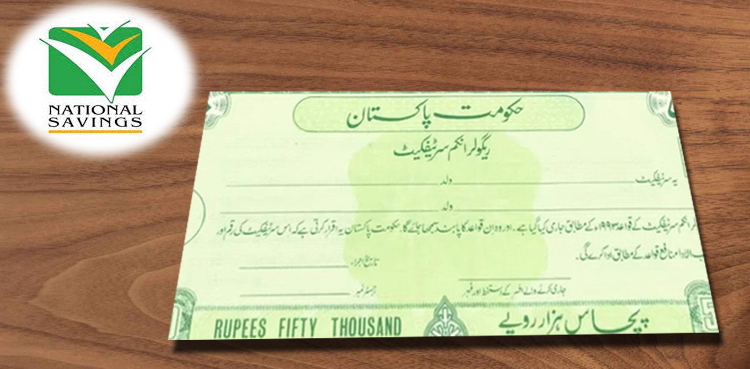 NATIONAL
SAVINGS
حکومت پاکستان
ریگولر انکم سرٹیفکیٹ
یہ سرٹیفکیٹ ولد
ولد
انکم سرٹیفکیٹ کے قواعد ۱۹۹۳ء کے مطابق جاری کیا گیا ہے۔ اور وہ ان قواعد کا پابند سمجھا جائے گا۔ حکومت پاکستان یہ اقرار کرتی ہے کہ اس سرٹیفکیٹ کی رقم اور
الادا منافع قواعد کے مطابق ادا کرے گی۔
تاریخ اجراء
جاری کرنے والے افسر کے دستخط اور مہر رجسٹر نمبر
RUPEES FIFTY THOUSAND پچاس ہزار روپے